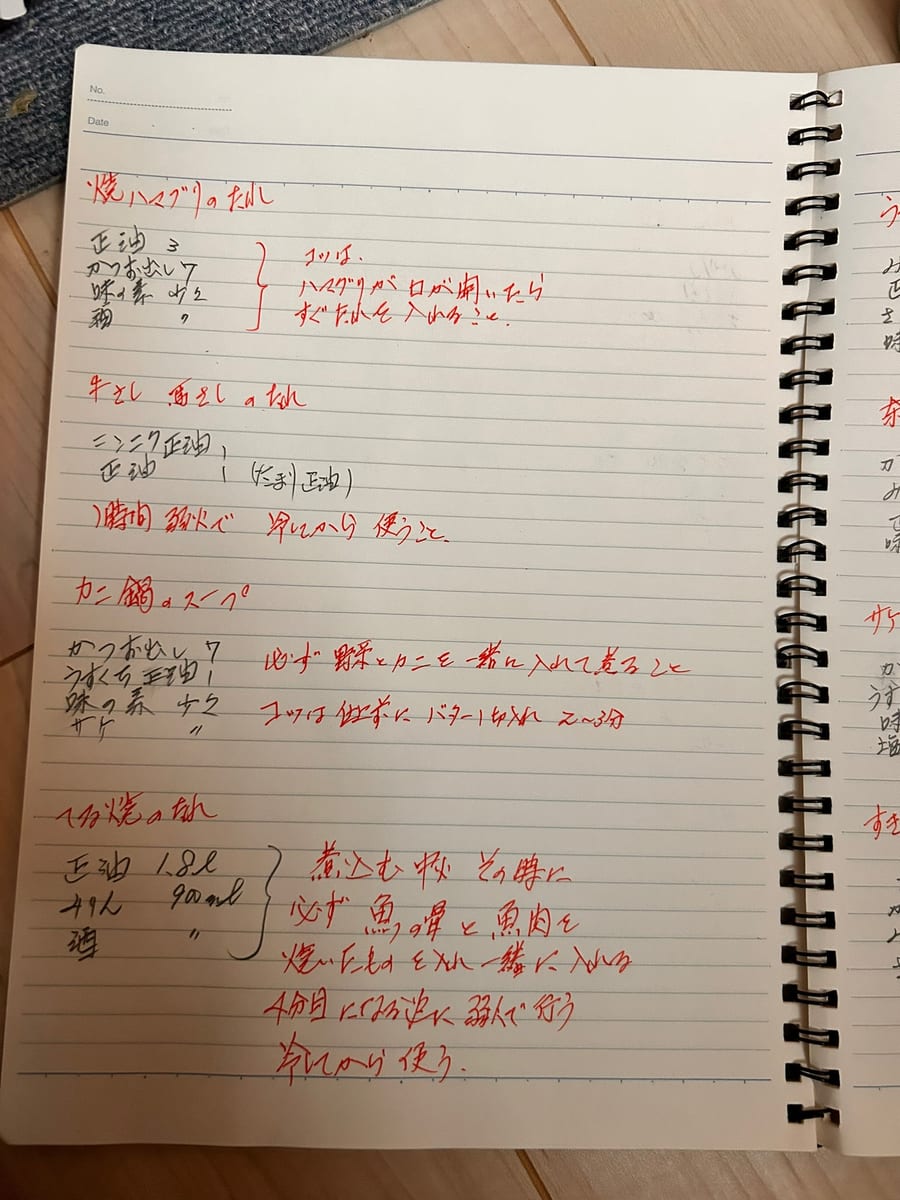 No.
Date
焼ハマグリのたれ
正油 3
かつお出し 7
味の素 少々
酒 〃
コツは、
ハマグリが口が開いたら
すぐたれを入れること。
牛さし 馬さしのたれ
ニンニク正油 1
正油 1 (たまり正油)
1時間 弱火で 冷してから 使うこと。
カニ鍋のスープ
かつお出し 7
うすくち正油 1
味の素 少々
サケ 〃
必ず 野菜とカニを一緒に入れて煮ること
コツは 仕上前に バター1切入れ 2〜3分
てり焼のたれ
正油 1.8ℓ
みりん 900mℓ
酒 〃
煮込む 中火 その時に
必ず 魚の骨と魚肉を
焼いたものを入れ一緒に入れる
4分目になる迄に 弱火で行う
冷してから 使う。
うす
サケ
うす
味
すき